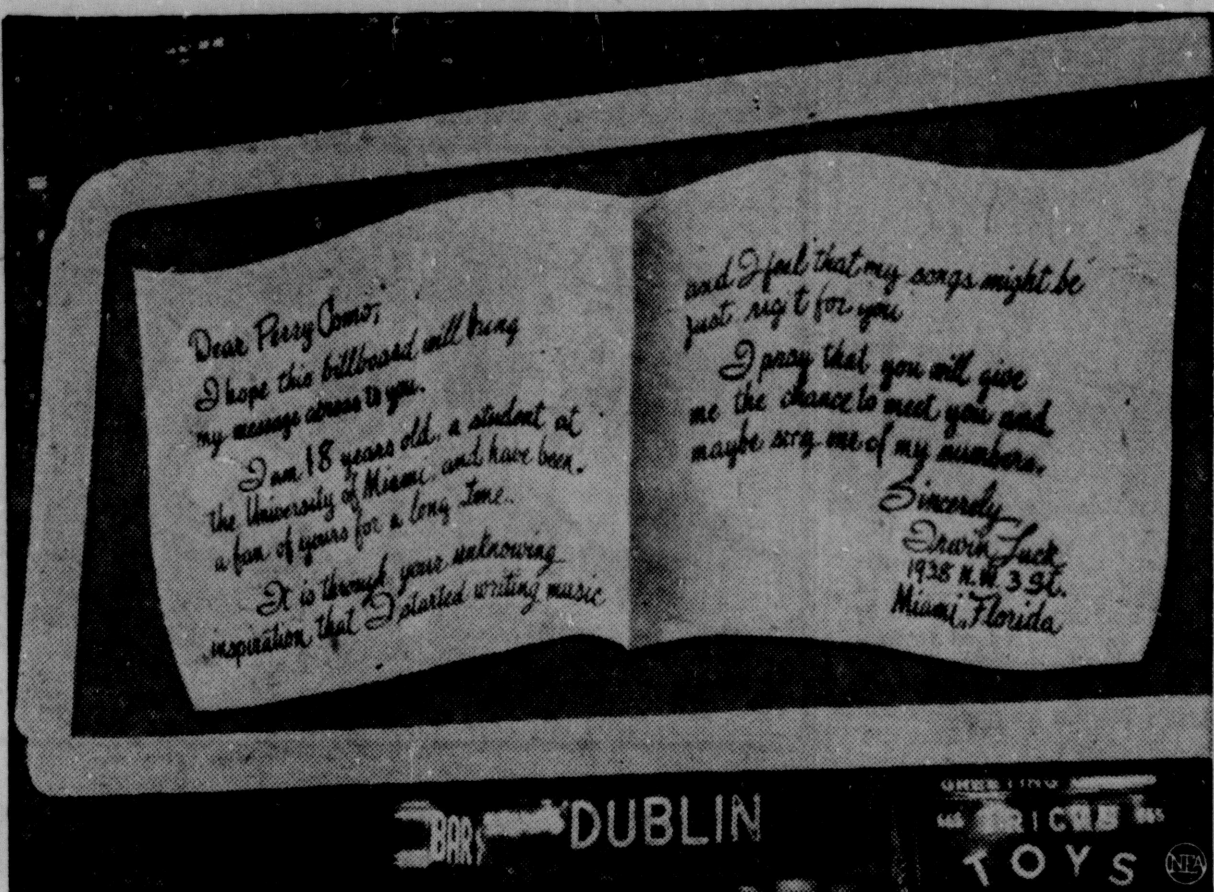 Dear Perry Como,
I hope this billboard will bring
my message across to you.
I am 18 years old, a student at
the University of Miami, and have been
a fan of yours for a long time.
It is through your unknowing
inspiration that I started writing music
and I feel that my songs might be
just rig t for you
I pray that you will give
me the chance to meet you and
maybe sing one of my numbers.
Sincerely
Irwin Luck
1938 N.W. 3 St.
Miami, Florida
BAR
DUBLIN
GREETING
TOYS
NEA